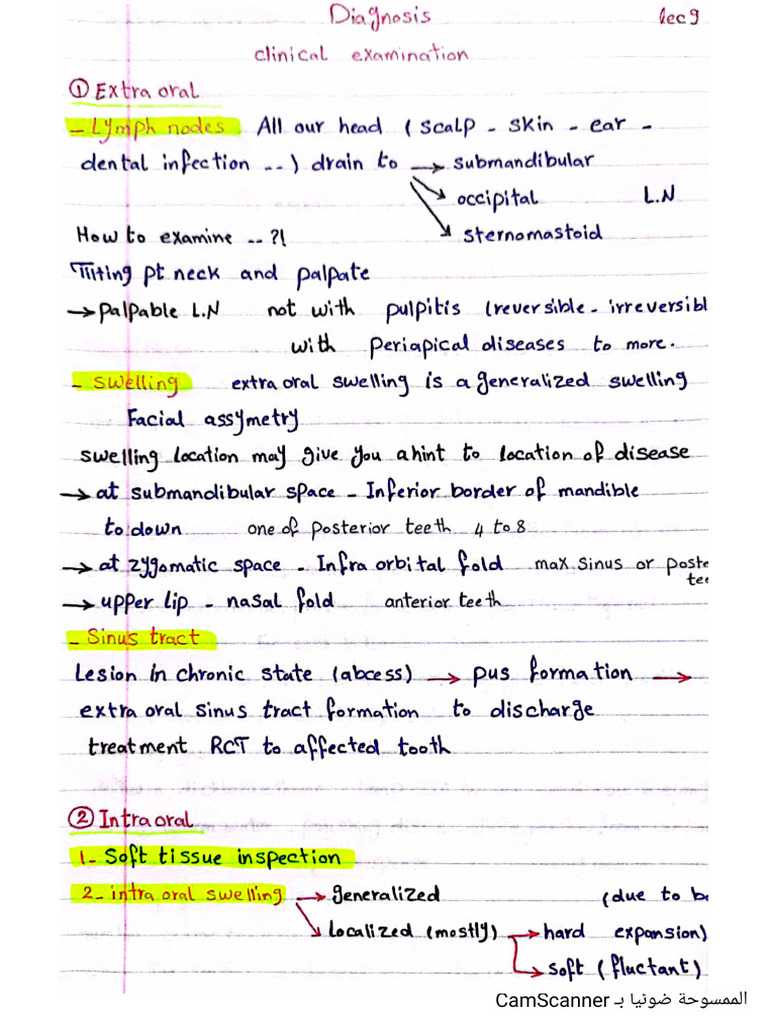 Diagnosis lec 9
clinical examination
① Extra oral
- Lymph nodes All our head (scalp - skin - ear -
dental infection ..) drain to → submandibular
occipital L.N
sternomastoid
How to examine .. ?!
Tilting pt neck and palpate
→ palpable L.N not with pulpitis (reversible - irreversibl
with periapical diseases to more.
- swelling extra oral swelling is a generalized swelling
Facial assymetry
swelling location may give you a hint to location of disease
→ at submandibular space - Inferior border of mandible
to down one of posterior teeth 4 to 8
→ at zygomatic space - Infra orbital fold max sinus or poste
tee
→ upper lip - nasal fold anterior teeth
- Sinus tract
Lesion in chronic state (abcess) → pus formation →
extra oral sinus tract formation to discharge
treatment RCT to affected tooth
② Intra oral
1- Soft tissue inspection
2- intra oral swelling → generalized (due to bo
localized (mostly) → hard expansion)
soft (fluctant)
الممسوحة ضوئيا بـ CamScanner